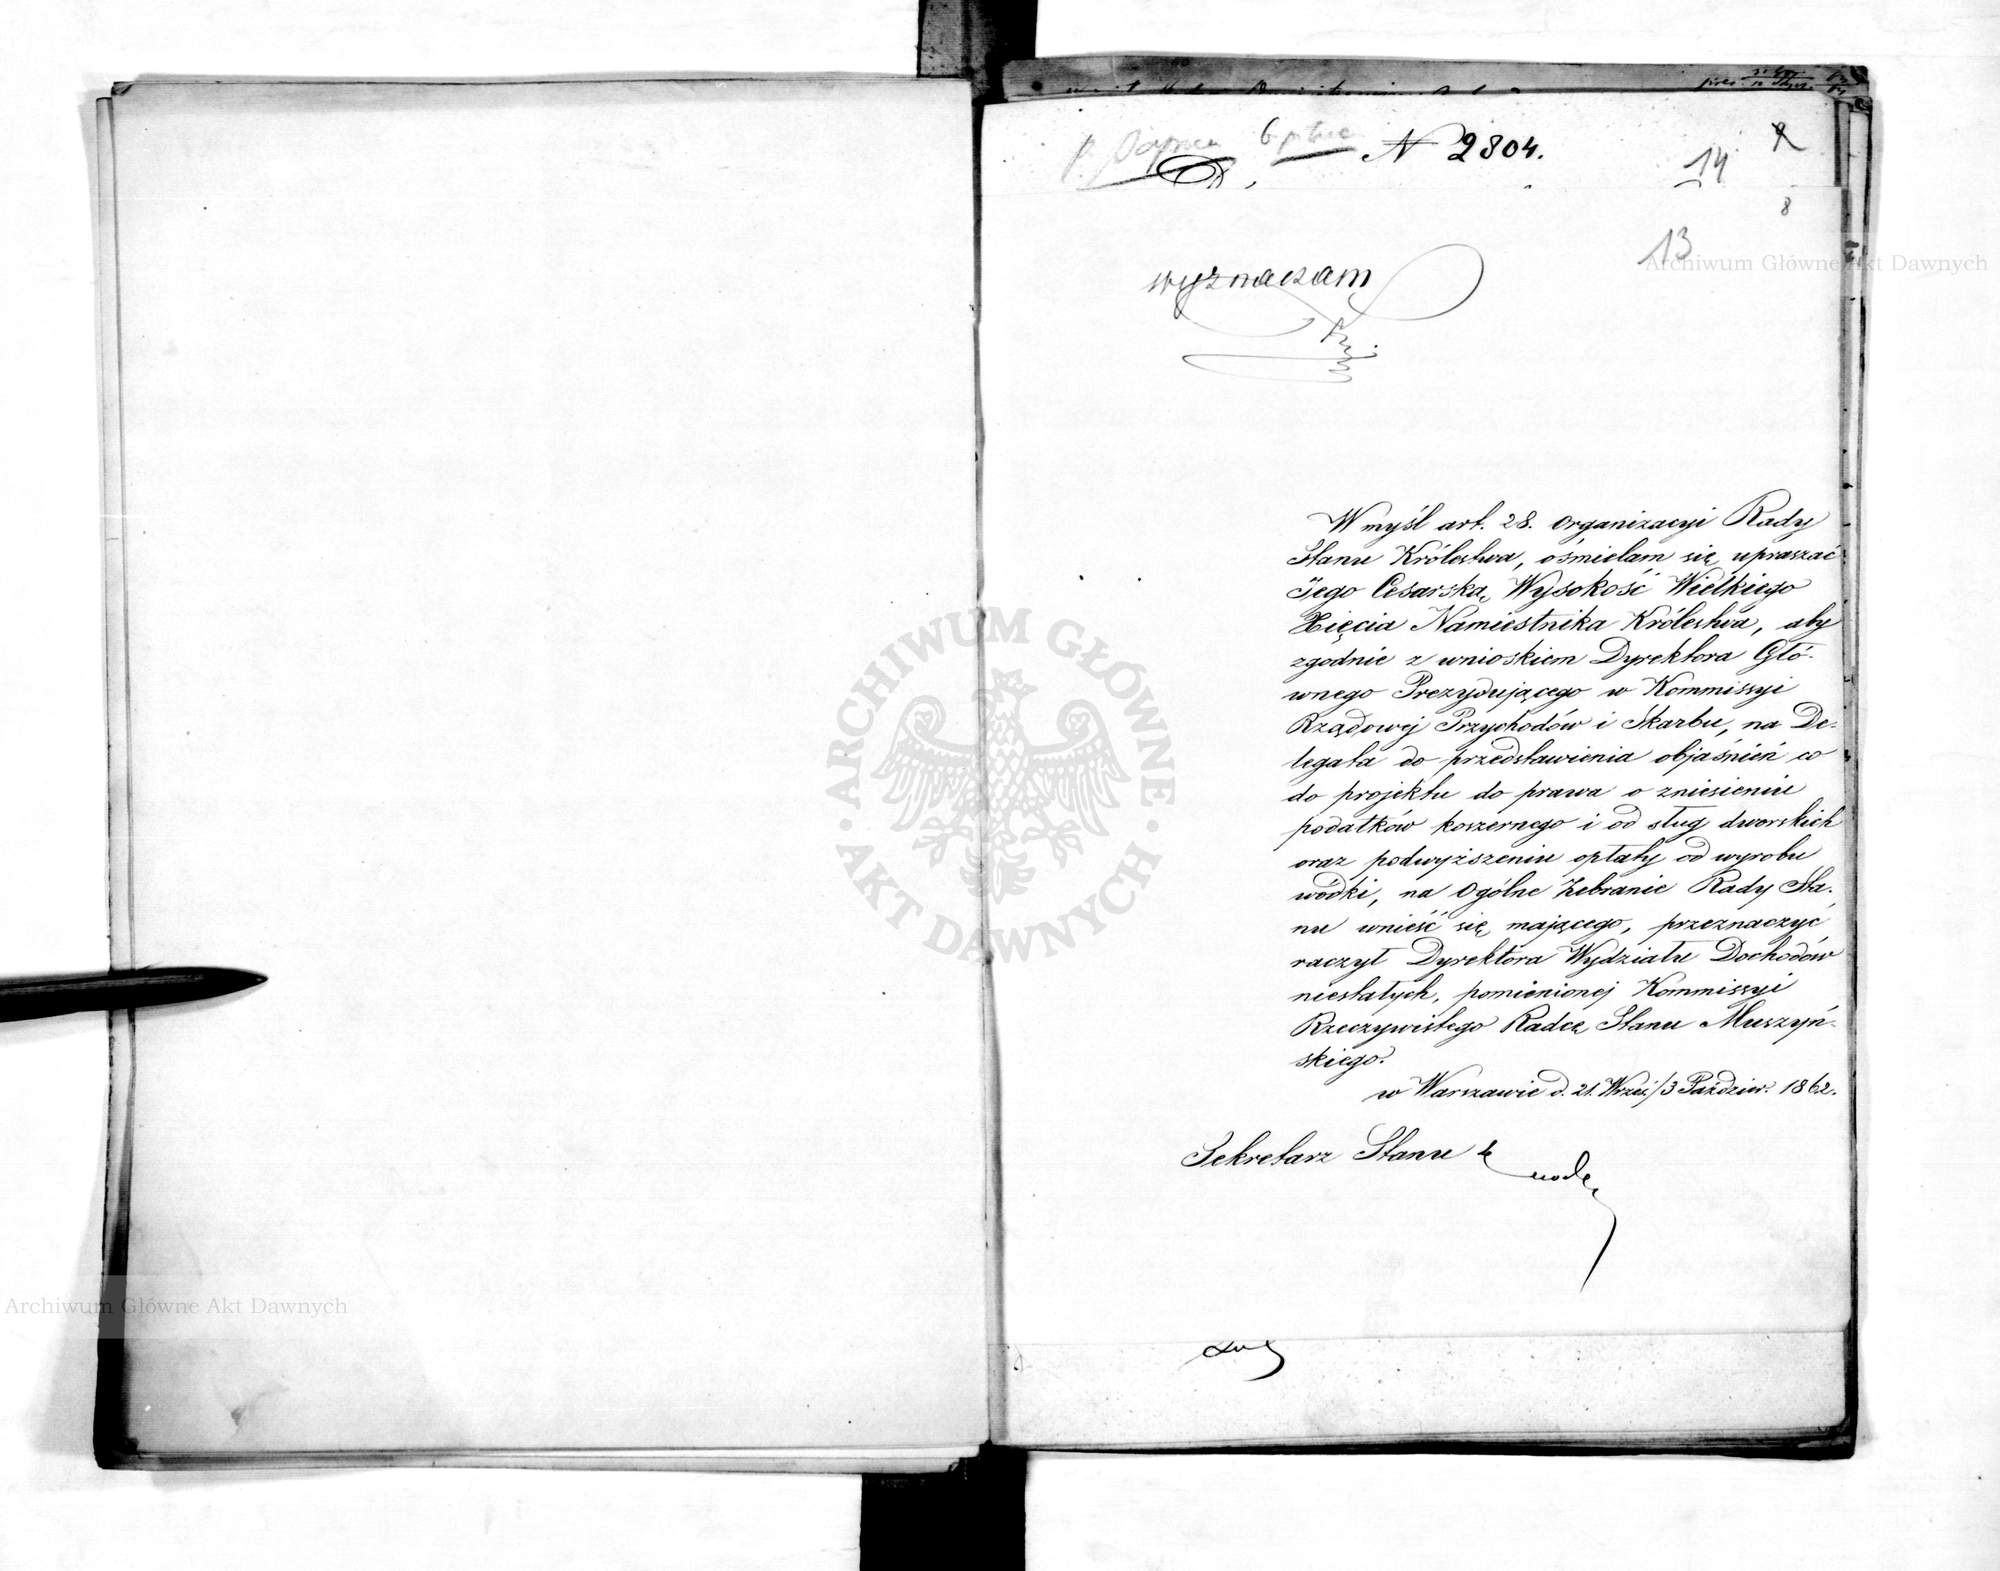 N 2804.
14
8
13
wyznaczam
W myśl art. 28. Organizacyi Rady
Stanu Królestwa, ośmielam się upraszać
Jego Cesarską Wysokość Wielkiego
Xięcia Namiestnika Królestwa, aby
zgodnie z wnioskiem Dyrektora Głó-
wnego Prezydującego w Kommissyi
Rządowej Przychodów i Skarbu, na De-
legata do przedstawienia objaśnień co
do projektu do prawa o zniesieniu
podatków koszernego i od sług dworskich
oraz podwyższeniu opłaty od wyrobu
wódki, na Ogólne Zebranie Rady Sta-
nu wnieść się mającego, przeznaczyć
raczył Dyrektora Wydziału Dochodów
niestałych, pomienionej Kommissyi
Rzeczywistego Radcę Stanu Muszyń-
skiego.
w Warszawie d. 21. Wrześ./3 Paździer. 1862.
Sekretarz Stanu
ARCHIWUM GŁÓWNE
AKT DAWNYCH
Archiwum Główne Akt Dawnych
Archiwum Główne Akt Dawnych